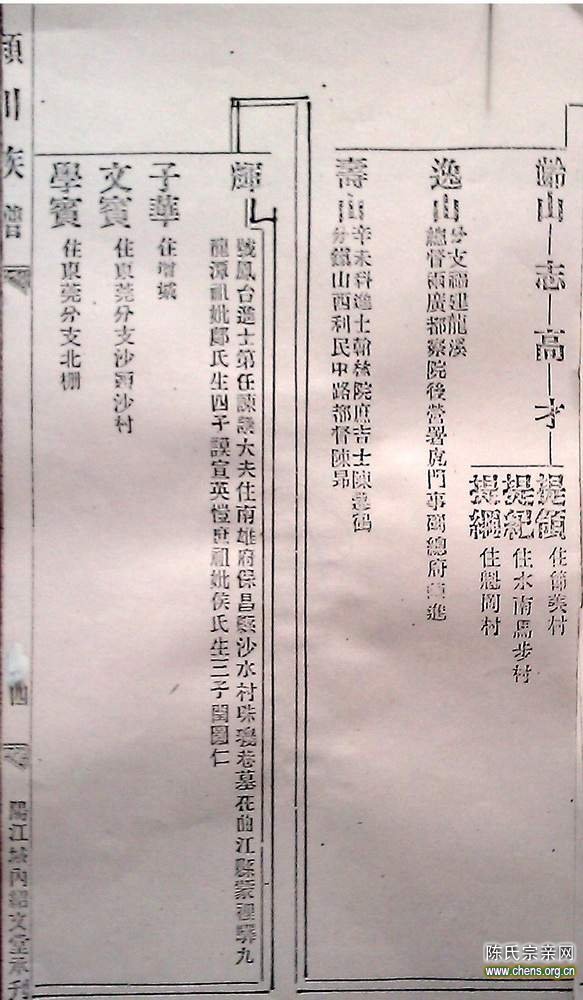 山—志高—才
提領 住節美村
提紀 住水南馬步村
提綱 住魁岡村
逸山 分支福建龍溪
總督兩廣都察院後營署虎門事
總府
進
壽山 辛未科進士翰林院庶吉士陳
分鎮山西利民中路都督陳昂
輝
號鳳台進士第任諫議大夫住南雄府保昌縣沙水村珠璣巷墓在曲江縣蒙裡驛九
龍潭祖妣鄭氏生四子謨宣英愷庶祖妣侯氏生三子閏圖仁
子華 住增城
文賓 住東莞分支沙頭沙村
學賓 住東莞分支北柵
潁川族譜
四
陽江城內紹文堂承刊
陈氏宗亲网
www.chens.org.cn